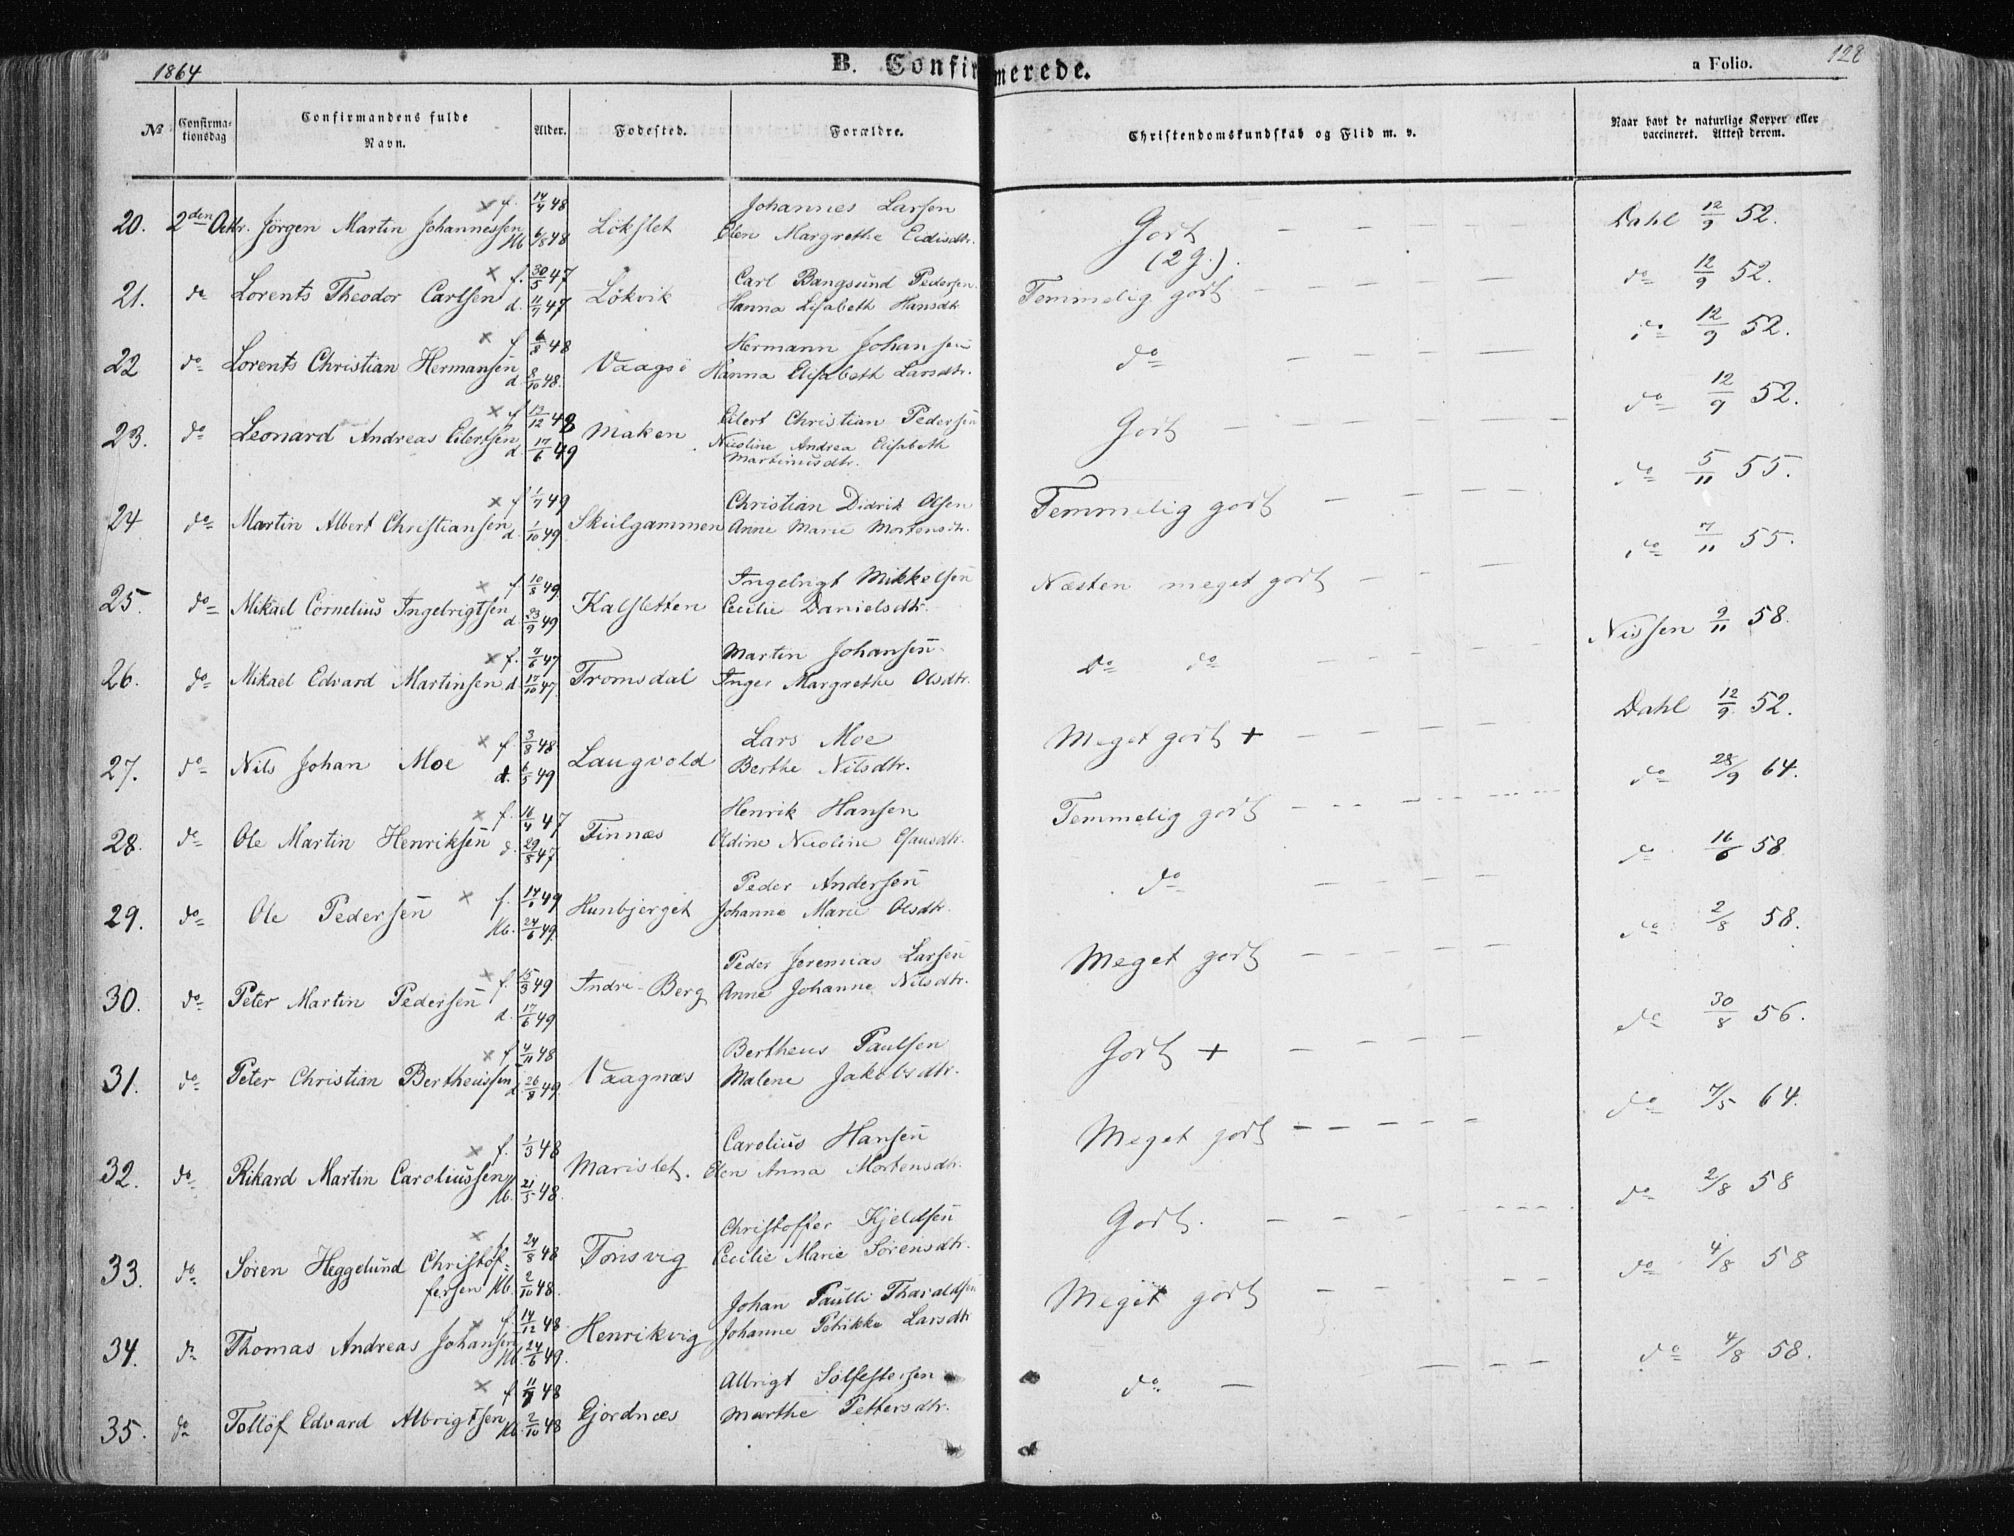 1864
B. Confirmerede.
a Folio.
128
No
Confirmationsdag
Confirmandens fulde Navn.
Alder.
Fødested.
Forældre.
Christendomskundskab og Flid m. v.
Naar havt de naturlige Kopper eller vaccineret. Attest derom.
20. 2den Octr. Jörgen Martin Johannessen × f. 14/7 48 Kb 6/8 48 Lökslet Johannes Larsen Elen Margrethe Eidisdtr. Godt (2 g.). Dahl 12/9 52.
21. do Lorents Theodor Carlsen × f. 30/5 47 d. 11/7 47 Lökvik Carl Bangsund Pedersen Hanna Elisabeth Hansdtr Temmelig godt do 12/9 52.
22 do Lorents Christian Hermansen × f 6/8 48 d 8/10 48. Vaagsö Hermann Johansen Hanna Elisabeth Larsdtr. do do 12/9 52.
23. do Leonard Andreas Eilertsen × f 13/12 48 d. 17/6 49 Maken Eilert Christian Pedersen Nicoline Andrea Elisabeth Martinusdtr. Godt do 12/9 52.
24 do Martin Albert Christiansen × f 1/7 49 d. 1/10 49 Skulgammen Christian Didrik Olsen Anne Marie Mortensdtr. Temmelig godt do 5/11 55.
25. do Mikael Cornelius Ingebrigtsen × f. 10/8 49 d 23/9 49 Kalsletten Ingebrigt Mikkelsen Cecilie Danielsdtr. Næsten meget godt do 7/11 55.
26. do Mikael Edvard Martinsen × f. 4/6 47 d 17/10 47 Tromsdal Martin Johansen Inger Margrethe Olsdtr. Do do Nissen 9/11 58.
27. do Nils Johan Moe × f. 3/8 48 d. 6/5 49 Laugvold Lars Moe Berthe Nilsdtr. Meget godt + Dahl 12/9 52.
28. do Ole Martin Henriksen × f. 16/4 47 d. 29/8 47 Finnæs Henrik Hansen Oldine Nicoline Esausdtr. Temmelig godt do 28/9 64.
29. do Ole Pedersen × f. 14/6 49 Kb. 24/6 49. Hunbjerget Peder Andersen Johanne Marie Olsdtr. do do 16/6 58
30. do Peter Martin Pedersen × f. 15/3 49 d. 17/6 49 Indre-Berg Peder Jeremias Larsen Anne Johanne Nilsdtr. Meget godt do 2/8 58.
31. do Peter Christian Bertheussen × f 4/11 48 d. 26/8 49 Vaagnæs Bertheus Paulsen Malene Jakobsdtr. Godt + do 30/8 56.
32. do Rikard Martin Caroliussen × f. 1/3 48 Kb. 21/5 48. Marislet. Carolius Hansen Elen Anna Mortensdtr. Meget godt do 7/5 64.
33. do Sören Heggelund Christoffersen × f 24/8 48 Kb. 2/10 48. Tonsvig Christoffer Kjeldsen Cecilie Marie Sörensdtr. Godt. do 2/8 58
34. do Thomas Andreas Johansen × f. 14/12 48 Kb. 24/6 49. Henrikvig Johan Paulli Tharaldsen Johanne Petrikke Larsdtr Meget godt do 4/8 58
35. do Tollöf Edvard Albrigtsen × f. 11/9 48 Kb. 2/10 48 Gjordnæs Albrigt Solfestersen Marthe Pettersdtr. do do 4/8 58.